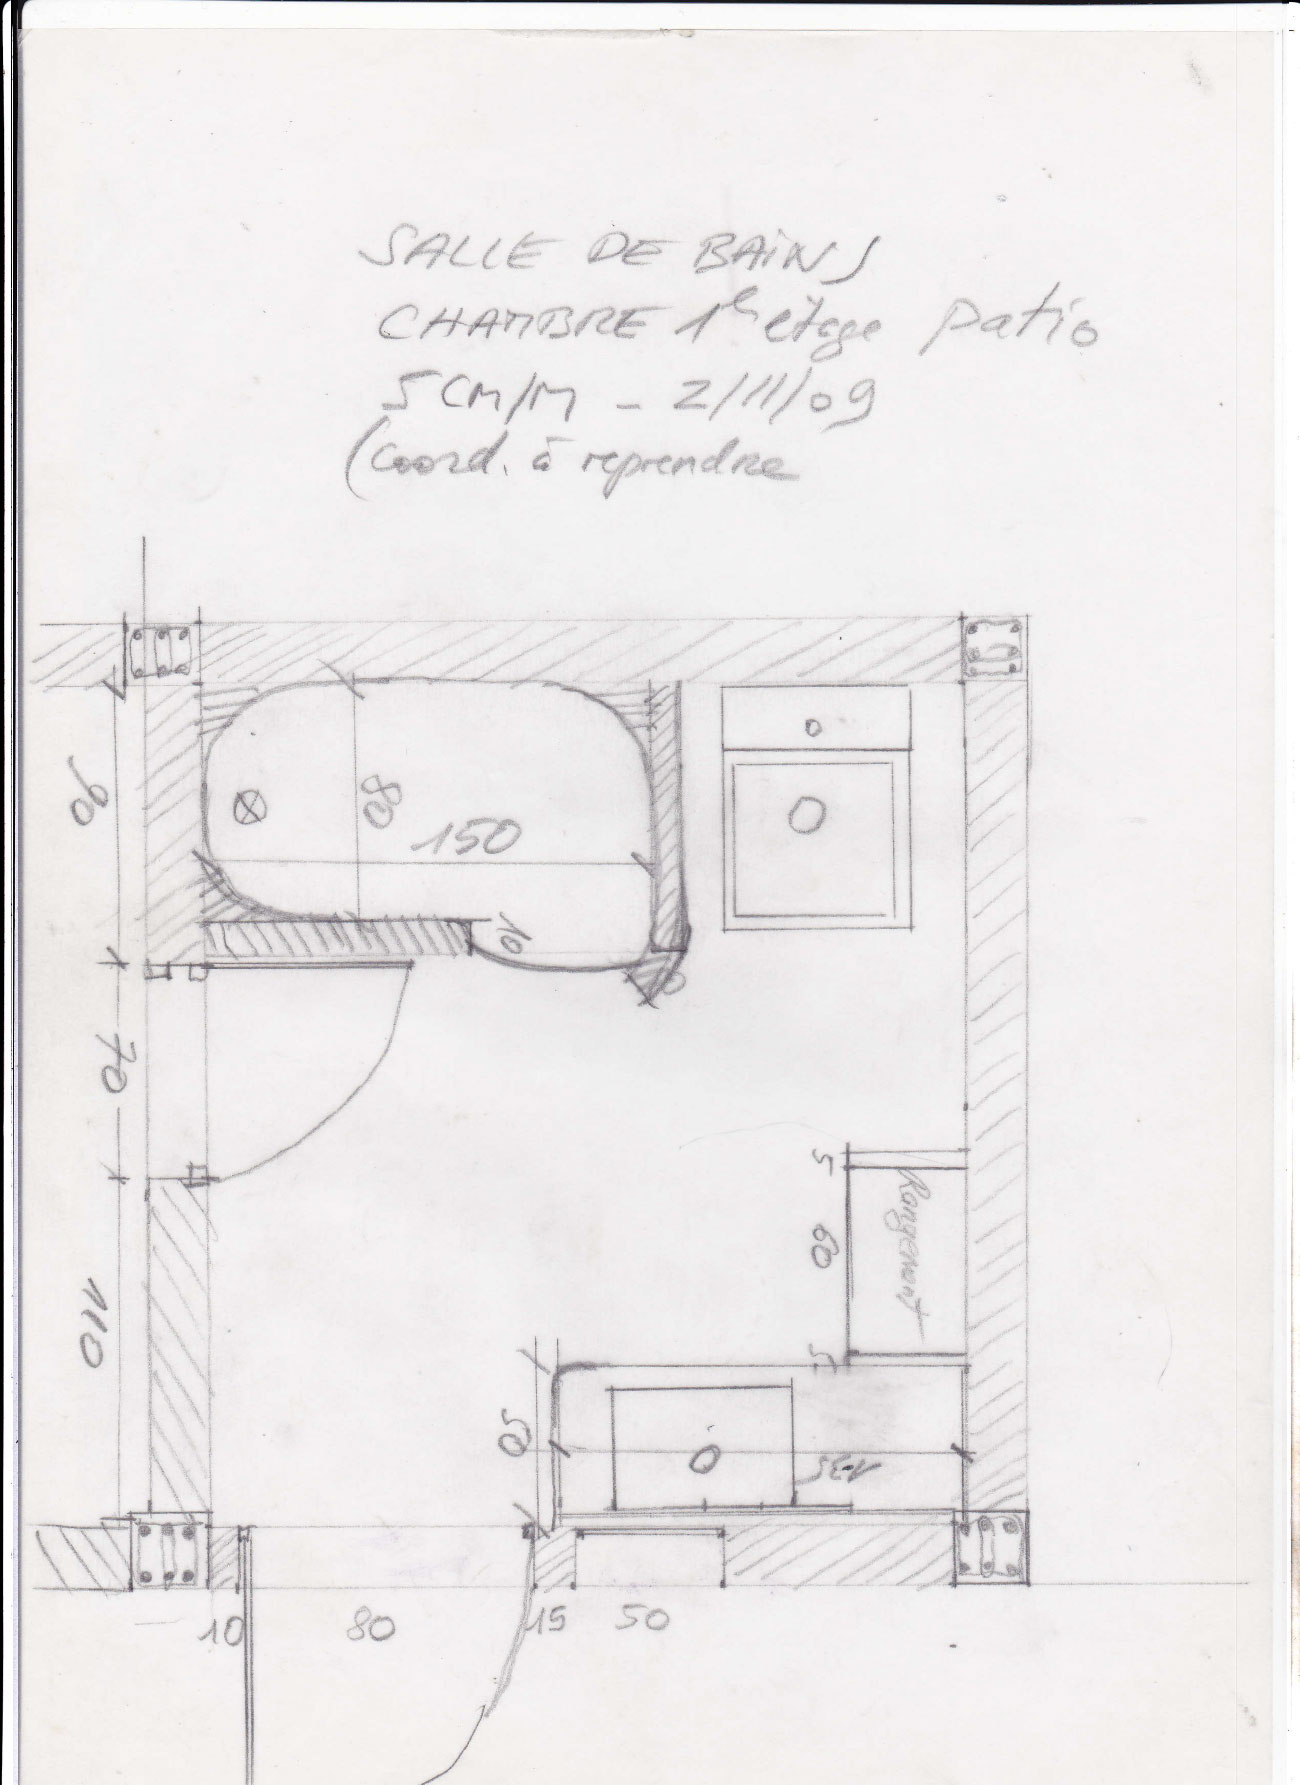 SALLE DE BAINS
CHAMBRE 1er étage patio
5 CM/M - 2/11/09
(coord. à reprendre
90
80
150
10
70
5
Rangement
60
110
5
50
135
10
80
15
50